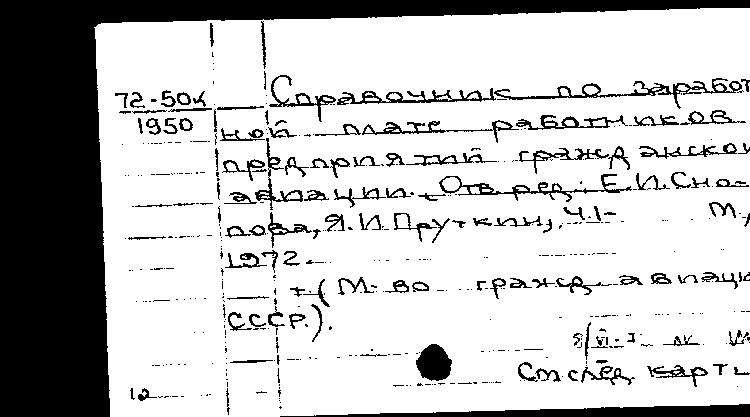 72-50к Справочник по заработ
1950 ной плате работников
предприятий гражданской
авиации. Отв. ред.: Е.И.Сно-
пова, Я.И.Пруткин, Ч.1- М.,
1972.
+(М-во гражд. авиаци
СССР.).
8/VI-
См след карты
12